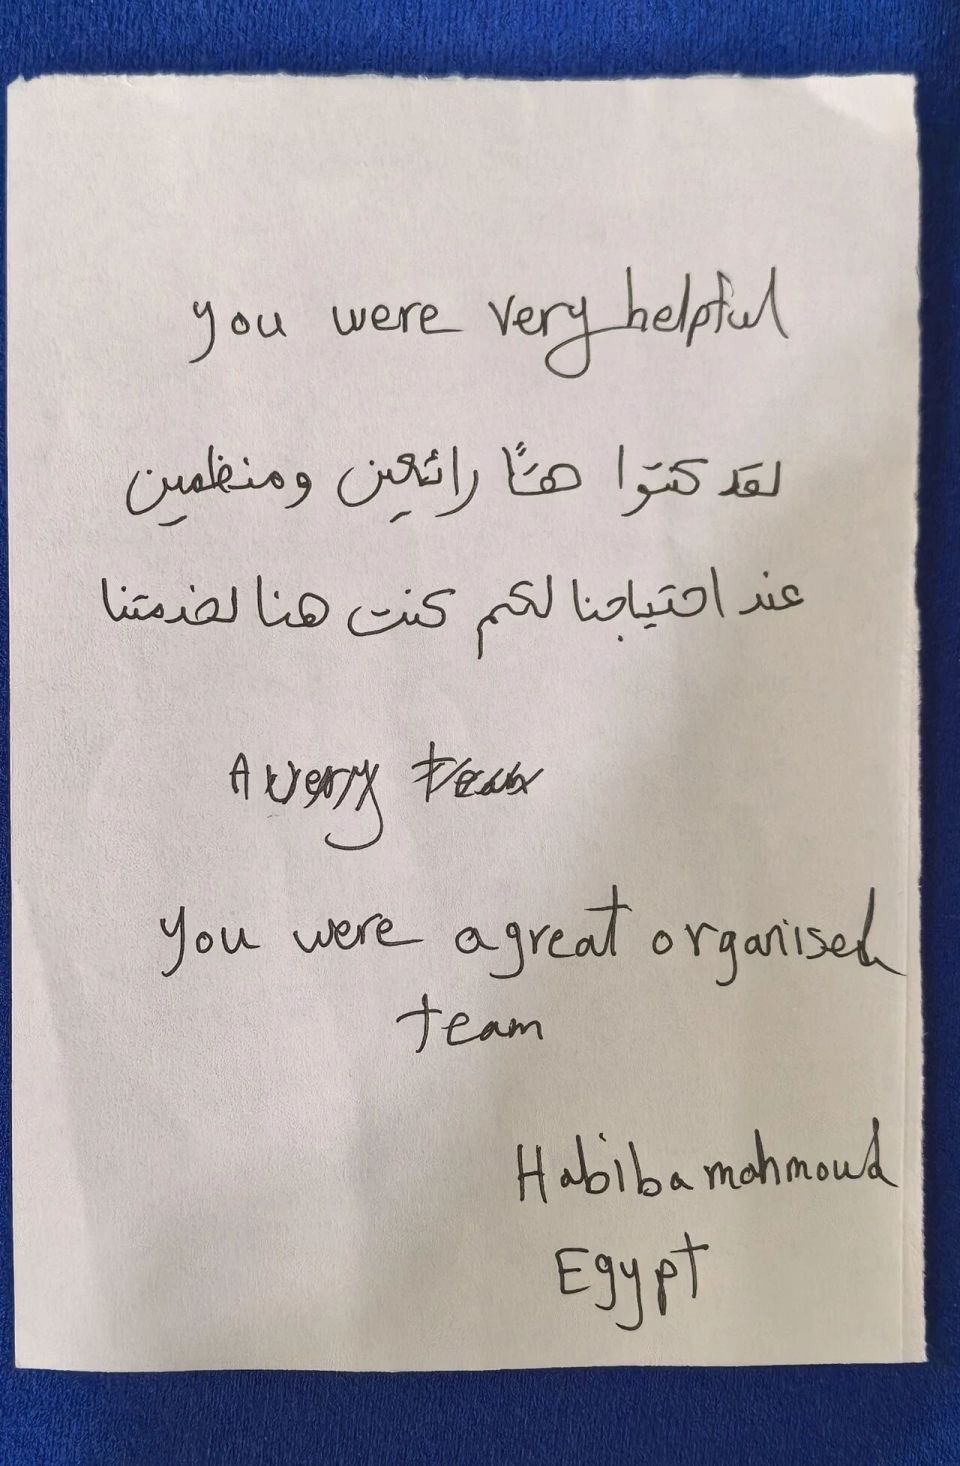 you were very helpful
لقد كنتوا حقًا رائعين ومنظمين
عند احتياجنا لكم كنت هنا لخدمتنا
A very team
You were a great organised
team
Habiba mahmoud
Egypt